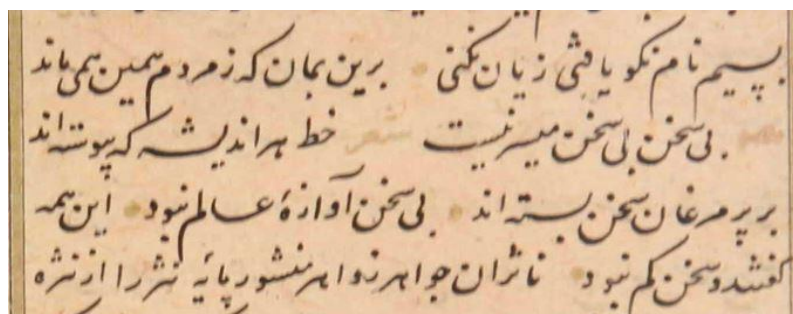 بسیم نام نکو یافتی زیان نکنی برین بمان که ز مردم همین همی ماند
بی سخن بی سخن میسر نیست شعر خط هر اندیشه که پیوسته اند
بر پر مرغان سخن بسته اند بی سخن آوازۀ عالم نبود این همه
گفتند و سخن کم نبود ناثران جواهر زواهر منثور پایۀ نثر را از نثره